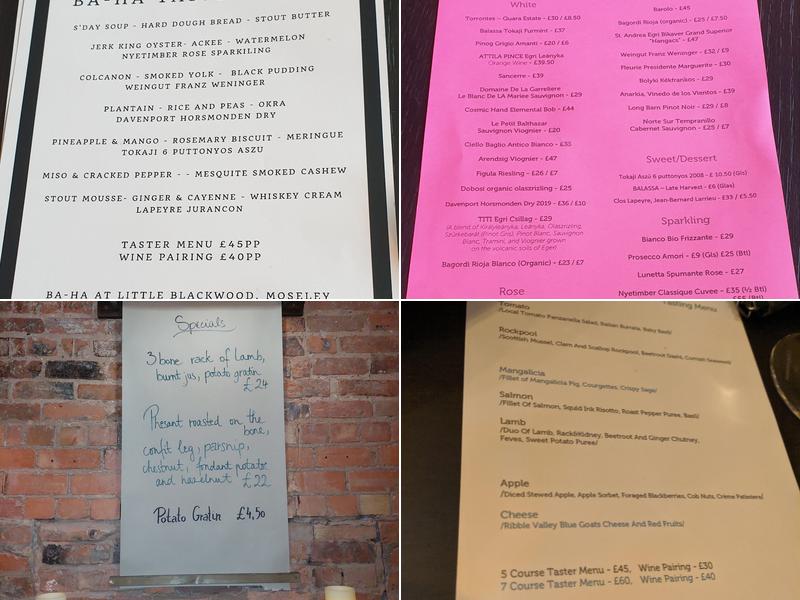 BA-HA
S'DAY SOUP - HARD DOUGH BREAD - STOUT BUTTER
JERK KING OYSTER- ACKEE - WATERMELON
NYETIMBER ROSE SPARKILING
COLCANON - SMOKED YOLK - BLACK PUDDING
WEINGUT FRANZ WENINGER
PLANTAIN - RICE AND PEAS - OKRA
DAVENPORT HORSMONDEN DRY
PINEAPPLE & MANGO - ROSEMARY BISCUIT - MERINGUE
TOKAJI 6 PUTTONYOS ASZU
MISO & CRACKED PEPPER - - MESQUITE SMOKED CASHEW
STOUT MOUSSE- GINGER & CAYENNE - WHISKEY CREAM
LAPEYRE JURANCON
TASTER MENU £45PP
WINE PAIRING £40PP
BA-HA AT LITTLE BLACKWOOD, MOSELEY
White
Torrontes - Quara Estate - £30 / £8.50
Balassa Tokaji Furmint - £37
Pinog Grigio Amanti - £20 / £6
ATTILA PINCE Egri Leányka
Orange Wine - £39.50
Sancerre - £39
Domaine De La Garreliere
Le Blanc De LA Mariee Sauvignon - £29
Cosmic Hand Elemental Bob - £44
Le Petit Balthazar
Sauvignon Viognier - £20
Ciello Baglio Antico Bianco - £33
Arendsig Viognier - £47
Figula Riesling - £26 / £7
Dobosi organic olaszrizling - £25
Davenport Horsmonden Dry 2019 - £36 / £10
TITI Egri Csillag - £29
(A blend of Királyleányka, Leányka, Olaszrizling,
Szürkebarát (Pinot Gris), Pinot Blanc, Sauvignon
Blanc, Tramini, and Viognier grown
on the volcanic soils of Eger)
Bagordi Rioja Blanco (Organic) - £23 / £7
Rose
Barolo - £45
Bagordi Rioja (organic) - £25 / £7.50
St. Andrea Egri Bikaver Grand Superior
"Hangacs" - £47
Weingut Franz Weninger - £32 / £9
Fleurie Presidente Marguerite - £30
Bolyki Kékfrankos - £29
Anarkia, Vinedo de los Vientos - £39
Long Barn Pinot Noir - £29 / £8
Norte Sur Tempranillo
Cabernet Sauvignon - £25 / £7
Sweet/Dessert
Tokaji Aszú 6 puttonyos 2008 - £ 10.50 (Gls)
BALASSA – Late Harvest - £6 (Gls)
Clos Lapeyre, Jean-Bernard Larrieu - £33 / £5.50
Sparkling
Bianco Bio Frizzante - £29
Prosecco Amori - £9 (Gls) £25 (Btl)
Lunetta Spumante Rose - £27
Nyetimber Classique Cuvee - £35 (½ Btl)
£55 (Btl)
Specials
3 bone rack of lamb,
burnt jus, potato gratin
£24
Phesant roasted on the
bone,
confit leg, parsnip,
chestnut, fondant potato
and hazelnut £22
Potato Gratin £4,50
Tasting Menu
Tomato
/Local Tomato Panzanella Salad, Italian Burrata, Baby Basil/
Rockpool
/Scottish Mussel, Clam And Scallop Rockpool, Beetroot Dashi, Cornish Seaweed/
Mangalicia
/Fillet of Mangalicia Pig, Courgettes, Crispy Sage/
Salmon
/Fillet Of Salmon, Squid Ink Risotto, Roast Pepper Puree, Basil/
Lamb
/Duo Of Lamb, Rack&Kidney, Beetroot And Ginger Chutney,
Feves, Sweet Potato Puree/
Apple
/Diced Stewed Apple, Apple Sorbet, Foraged Blackberries, Cob Nuts, Crème Patissiere/
Cheese
/Ribble Valley Blue Goats Cheese And Red Fruits/
5 Course Taster Menu - £45, Wine Pairing - £30
7 Course Taster Menu - £60, Wine Pairing - £40